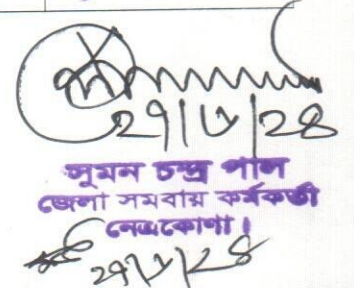 ২৭|৬|২৪
সুমন চন্দ্র পাল
জেলা সমবায় কর্মকর্তা
নেত্রকোণা।
২৭|৬|২৪